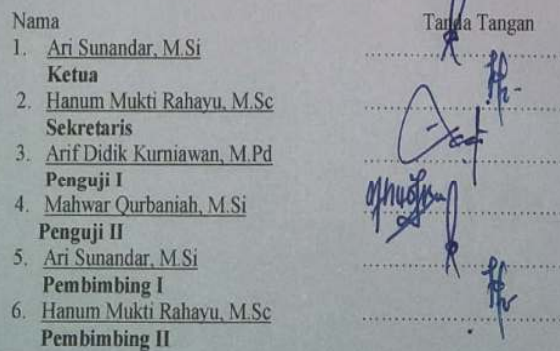 Nama Tanda Tangan
1. Ari Sunandar, M.Si
Ketua
2. Hanum Mukti Rahayu, M.Sc
Sekretaris
3. Arif Didik Kurniawan, M.Pd
Penguji I
4. Mahwar Qurbaniah, M.Si
Penguji II
5. Ari Sunandar, M.Si
Pembimbing I
6. Hanum Mukti Rahayu, M.Sc
Pembimbing II